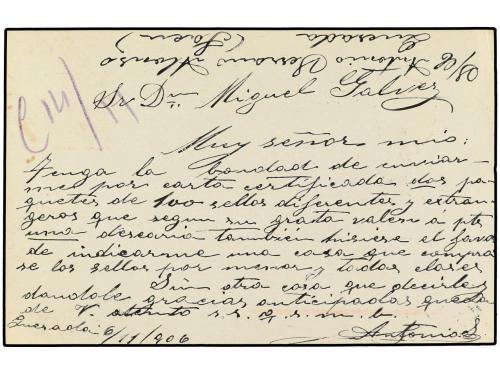 Sr Dn Miguel Galvez
Muy señor mio:
Tenga la bondad de enviar-
me por carta certificada dos pa-
quetes de 100 sellos diferentes y extran-
geros que segun su grata valen á pts
una desearia tambien hiciese el favor
de indicarme una casa que compra
se los sellos por menor y todas clases
Sin otra cosa que decirle y
dandole gracias anticipadas queda
de V. atento s. s. q. s. m. b.
Quesada 6/11/906 Antonio S.
Antonio Serrano Alonso
Quesada
(Jaen)